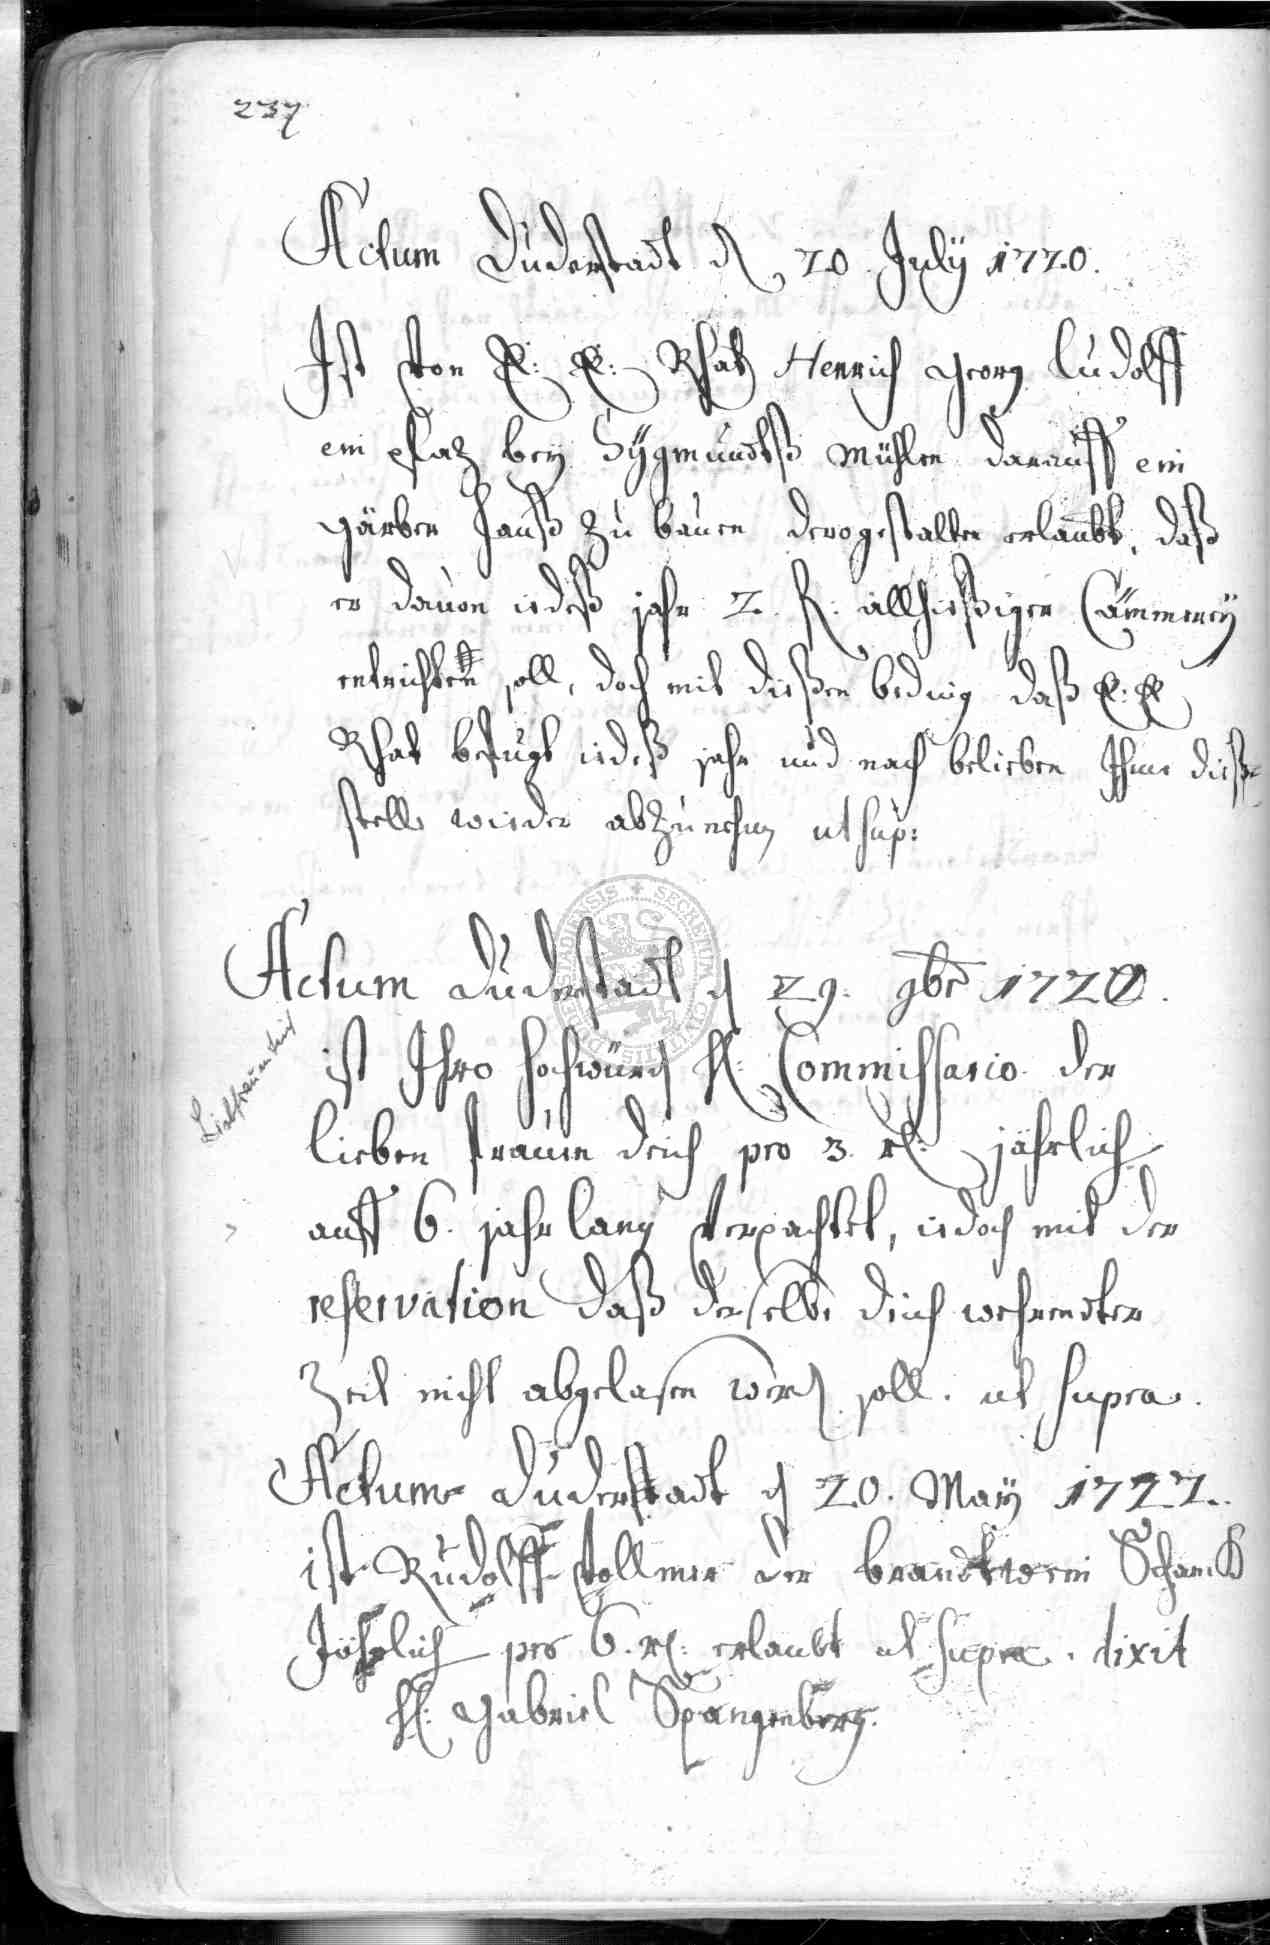 237
Actum Duderstadt d 20. Julÿ 1720.
Ist von E: E: Rhatz Henrich Georg Ludolff
ein platz beÿ Sÿgmundtß Mühlen darauff ein
gärber Hauß zu bauen derogestalten erlaubt, daß
er davon iedeß jahr 2. R: allhießiger Cämmereÿ
entrichten soll, doch mit dießen beding daß E: E
Rhat befugt iedeß jahr und nach belieben Ihme dieße
stelle wieder abzunehmen ut sup:
Actum Duderstadt d 29. 9br 1720.
Liebfrauenteich
ist Ihro Hochwürd H: Commissario der
lieben frauen deich pro 3. rl: jährlich
auff 6. jahr lang verpachtet, iedoch mit der
reservation daß derselbe deich wehrendter
Zeit nicht abgelasen werd soll. ut supra.
Actum Duderstadt d 20. Maÿ 1722.
ist Rudolff Vollmer der brandtwein Schanck
Jährlich pro 6. rl: erlaubt ut supra. dixit
H: Gabriel Spangenberg.
SECRETUM CIVITATIS DUDERSTADIENSIS